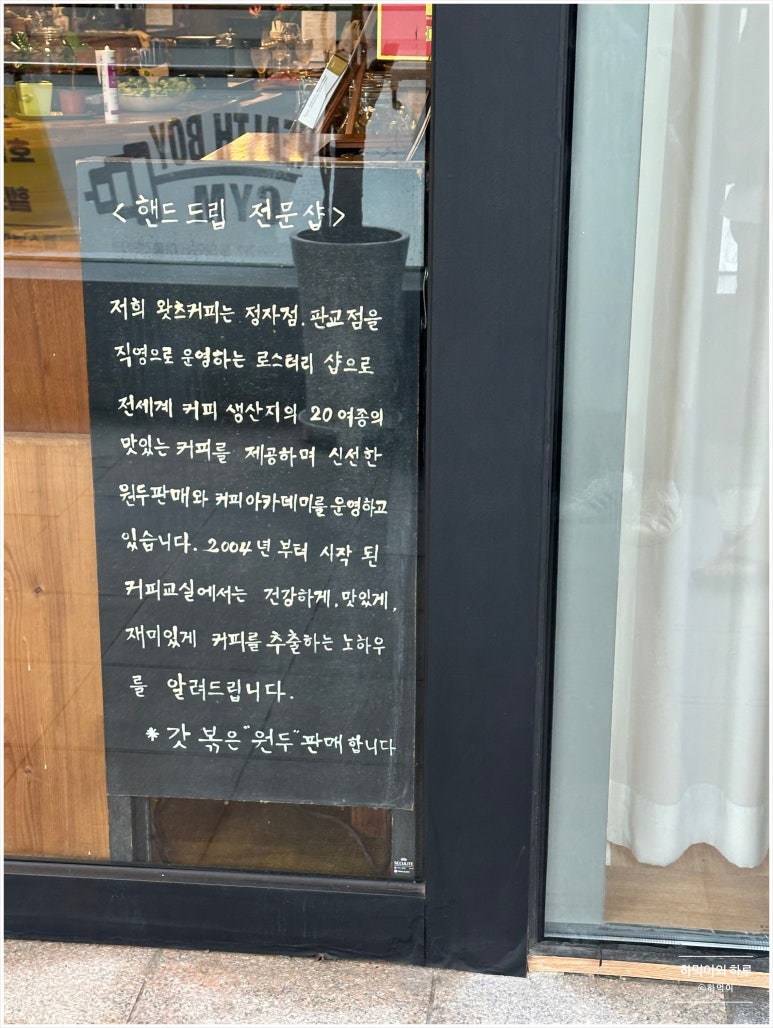 HEALTH BOY
GYM
<핸드드립 전문샵>
저희 왓츠커피는 정자점.판교점을
직영으로 운영하는 로스터리 샵으로
전세계 커피 생산지의 20여종의
맛있는 커피를 제공하며 신선한
원두판매와 커피아카데미를 운영하고
있습니다. 2004년부터 시작 된
커피교실에서는 건강하게, 맛있게,
재미있게 커피를 추출하는 노하우
를 알려드립니다.
* 갓 볶은 "원두" 판매합니다
SECURITE
하먹이의 하루
©하먹이